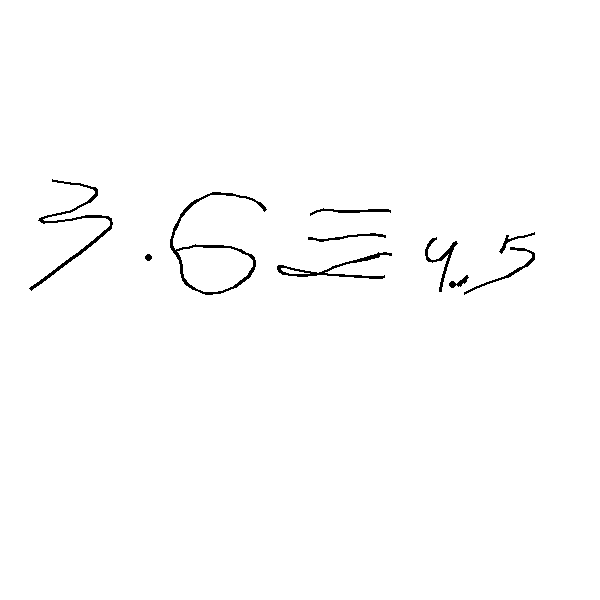 3.6 ≡ 4.5